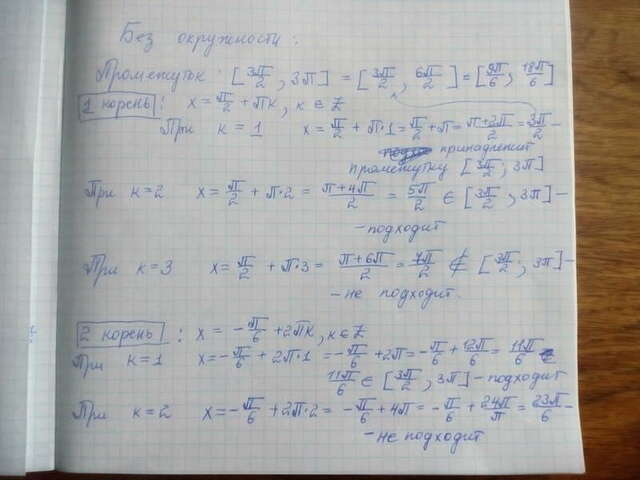 Без окружности:
Промежуток: [3π/2, 3π] = [3π/2, 6π/2] = [9π/6, 18π/6]
1 корень: x = π/2 + πк, к ∈ Z
При к = 1 x = π/2 + π·1 = π/2 + π = π+2π/2 = 3π/2 –
принадлежит
промежутку [3π/2, 3π]
При к = 2 x = π/2 + π·2 = π+4π/2 = 5π/2 ∈ [3π/2, 3π] –
– подходит
При к = 3 x = π/2 + π·3 = π+6π/2 = 7π/2 ∉ [3π/2, 3π] –
– не подходит.
2 корень: x = -π/6 + 2πк, к ∈ Z
При к = 1 x = -π/6 + 2π·1 = -π/6 + 2π = -π/6 + 12π/6 = 11π/6
11π/6 ∈ [3π/2, 3π] – подходит
При к = 2 x = -π/6 + 2π·2 = -π/6 + 4π = -π/6 + 24π/π = 23π/6 –
– не подходит